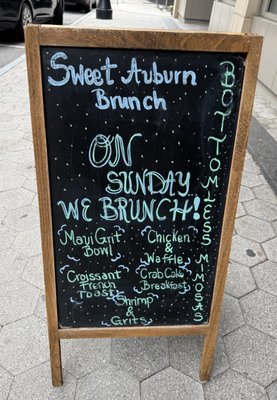 Sweet Auburn
Brunch
ON
SUNDAY...
WE BRUNCH!
Maui Grit
Bowl
Chicken
&
Waffle
Croissant
French
Toast
Crab Cake
Breakfast
Shrimp
&
Grits
BOTTOMLESS MIMOSAS